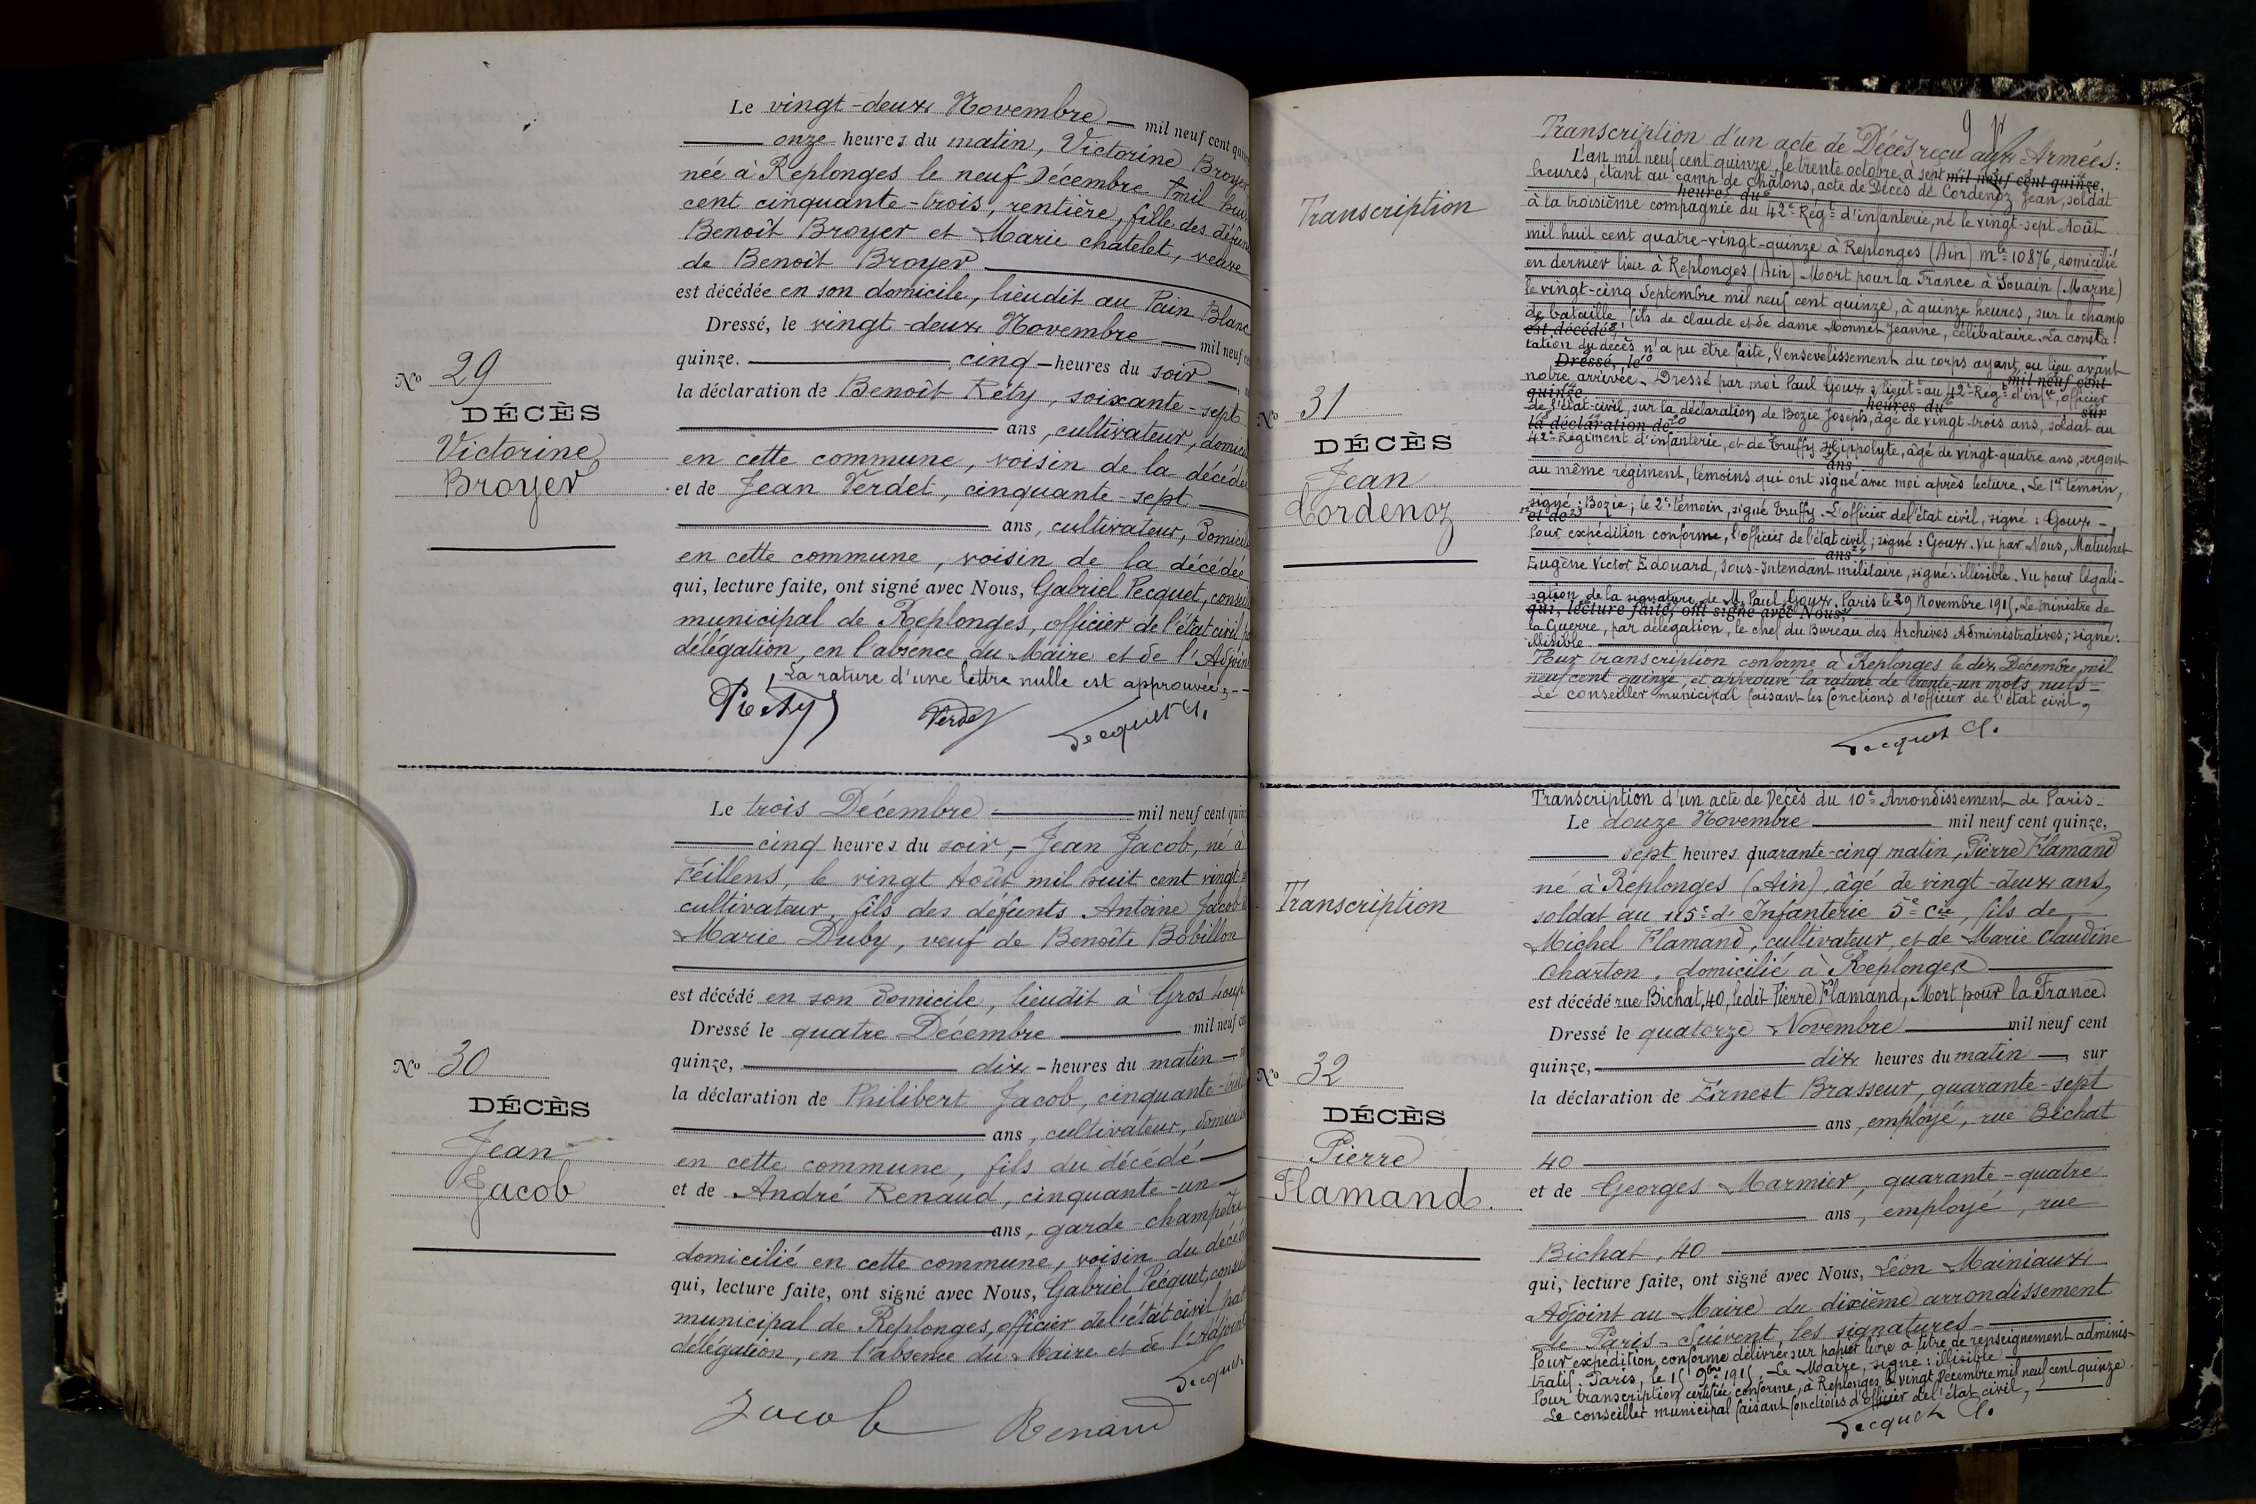 Le vingt-deux Novembre — mil neuf cent
onze heures du matin, Victorine Broyer
née à Replonges le neuf Décembre mil huit
cent cinquante-trois, rentière, fille des défunts
Benoît Broyer et Marie Chatelet, veuve
de Benoît Broyer
est décédée en son domicile, lieudit au Pain Blanc
Dressé, le vingt-deux Novembre — mil neuf
quinze. cinq - heures du soir
No 29
DÉCÈS
Victorine
Broyer
la déclaration de Benoît Réty, soixante-sept
ans, cultivateur,
en cette commune, voisin de la décédée
et de Jean Verdet, cinquante-sept
ans, cultivateur,
en cette commune, voisin de la décédée
qui, lecture faite, ont signé avec Nous, Gabriel Pecquet,
municipal de Replonges, officier de l'état civil
délégation, en l'absence du Maire et de l'Adjoint
La rature d'une lettre nulle est approuvée,
Réty Verdet Pecquet G.
Le trois Décembre mil neuf cent
cinq heures du soir, - Jean Jacob, né à
Feillens, le vingt Août mil huit cent vingt
cultivateur, fils des défunts Antoine Jacob
Marie Duby, veuf de Benoîte Bobillon
est décédé en son domicile, lieudit à Gros
Dressé le quatre Décembre mil neuf
No 30
DÉCÈS
Jean
Jacob
quinze, dix - heures du matin
la déclaration de Philibert Jacob,
ans, cultivateur,
en cette commune, fils du décédé
et de André Renaud, cinquante-un
ans, garde-champêtre
domicilié en cette commune, voisin du décédé
qui, lecture faite, ont signé avec Nous, Gabriel Pecquet,
municipal de Replonges, officier de l'état civil par
délégation, en l'absence du Maire et de l'Adjoint
Pecquet
Jacob Renaud
Transcription
No 31
DÉCÈS
Jean
Cordenoz
Transcription d'un acte de Décès reçu aux Armées:
L'an mil neuf cent quinze, le trente octobre, à sept mil neuf cent quinze,
heures, étant au camp de Châlons, acte de Décès de Cordenoz Jean, soldat
heures du
à la troisième compagnie du 42e Régt d'infanterie, né le vingt-sept Août
mil huit cent quatre-vingt-quinze à Replonges (Ain) mle 10876, domicilié
en dernier lieu à Replonges (Ain) Mort pour la France à Souain (Marne)
le vingt-cinq Septembre mil neuf cent quinze, à quinze heures, sur le champ
de bataille, fils de Claude et de dame Monnet Jeanne, célibataire. La consta-
est décédé
tation du décès n'a pu être faite, l'ensevelissement du corps ayant eu lieu avant
Dressé, le mil neuf cent
notre arrivée. Dressé par moi Paul Goux, s/lieut au 42e Régt d'infie, officier
quinze heures du sur
de l'état-civil, sur la déclaration de Bozie Joseph, âgé de vingt-trois ans, soldat au
la déclaration de
42e Régiment d'infanterie, et de Truffy Hippolyte, âgé de vingt-quatre ans, sergent
ans
au même régiment, témoins qui ont signé avec moi après lecture. Le 1er témoin,
signé: Bozie; le 2e témoin, signé Truffy. L'officier de l'état civil, signé: Goux -
et de
Pour expédition conforme, l'officier de l'état civil; signé: Goux. Vu par Nous, Matuchet
ans
Eugène Victor Edouard, Sous-Intendant militaire, signé: illisible. Vu pour légali-
sation de la signature de M. Paul Goux. Paris le 29 Novembre 1915, Le ministre de
qui, lecture faite, ont signé avec Nous,
la Guerre, par délégation, le chef du Bureau des Archives Administratives; signé:
illisible
Pour transcription conforme à Replonges le dix Décembre mil
neuf cent quinze, et approuvé la rature de trente-un mots nuls -
Le conseiller municipal faisant les fonctions d'officier de l'état civil,
Pecquet G.
Transcription
No 32
DÉCÈS
Pierre
Flamand.
Transcription d'un acte de Décès du 10e Arrondissement de Paris -
Le douze Novembre mil neuf cent quinze,
sept heures quarante-cinq matin, Pierre Flamand
né à Replonges (Ain), âgé de vingt-deux ans,
soldat au 115e d'Infanterie 5e Cie, fils de
Michel Flamand, cultivateur, et de Marie Claudine
Charton, domicilié à Replonges
est décédé rue Bichat, 40, ledit Pierre Flamand, Mort pour la France.
Dressé le quatorze Novembre mil neuf cent
quinze, dix heures du matin, sur
la déclaration de Ernest Brasseur, quarante-sept
ans, employé, rue Bichat
40
et de Georges Marmier, quarante-quatre
ans, employé, rue
Bichat, 40
qui, lecture faite, ont signé avec Nous, Léon Mainiaux
Adjoint au Maire du dixième arrondissement
de Paris - Suivent les signatures -
Pour expédition conforme délivrée sur papier libre à titre de renseignement adminis-
tratif. Paris, le 15 9bre 1915. Le Maire, signé: illisible
Pour transcription certifiée conforme, à Replonges le vingt Décembre mil neuf cent quinze.
Le conseiller municipal faisant fonctions d'officier de l'état civil,
Pecquet G.